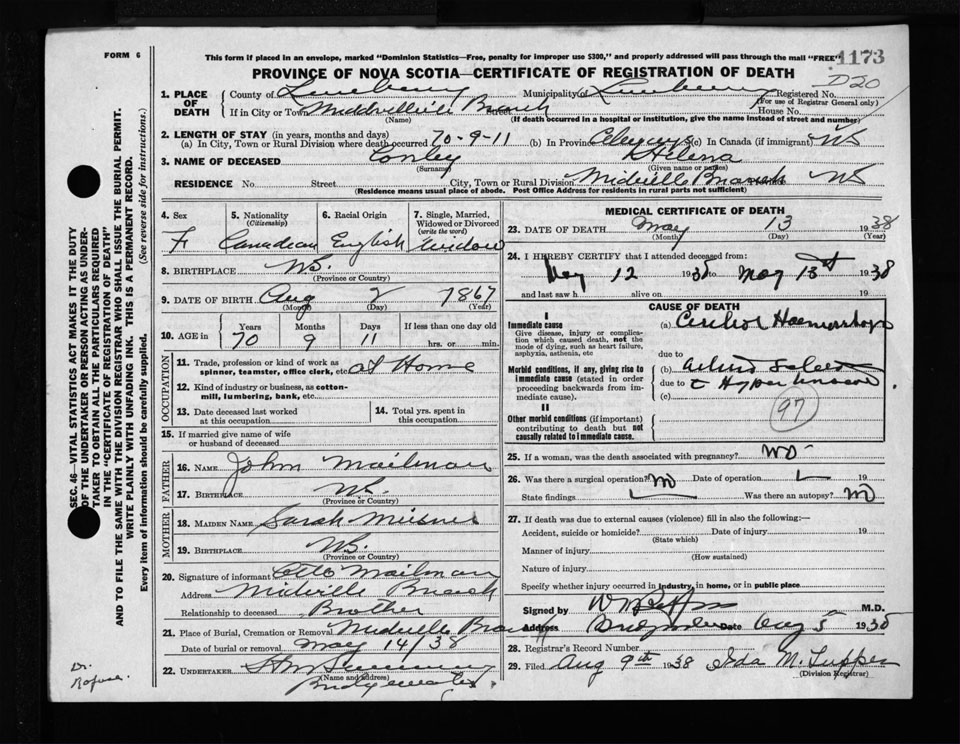 FORM 6
This form if placed in an envelope, marked "Dominion Statistics—Free, penalty for improper use $300," and properly addressed will pass through the mail "FREE"
1173
PROVINCE OF NOVA SCOTIA—CERTIFICATE OF REGISTRATION OF DEATH
D20
1. PLACE OF DEATH
County of Lunenburg Municipality of Lunenburg Registered No.
(For use of Registrar General only)
If in City or Town Street House No.
(Name) (If death occurred in a hospital or institution, give the name instead of street and number)
2. LENGTH OF STAY (in years, months and days)
(a) In City, Town or Rural Division where death occurred 70-9-11 (b) In Province Always (c) In Canada (if immigrant) NS
3. NAME OF DECEASED Conley Helena
(Surname) (Given name or names)
RESIDENCE No. Street City, Town or Rural Division Midville Branch NS
(Residence means usual place of abode. Post Office Address for residents in rural parts not sufficient)
4. Sex F
5. Nationality (Citizenship) Canadian
6. Racial Origin English
7. Single, Married, Widowed or Divorced (write the word) Widow
8. BIRTHPLACE N.S.
(Province or Country)
9. DATE OF BIRTH Aug 2 1867
(Month) (Day) (Year)
10. AGE in Years Months Days If less than one day old
70 9 11 hrs. or min.
OCCUPATION
11. Trade, profession or kind of work as spinner, teamster, office clerk, etc. at Home
12. Kind of industry or business, as cotton-mill, lumbering, bank, etc.
13. Date deceased last worked at this occupation
14. Total yrs. spent in this occupation
15. If married give name of wife or husband of deceased
FATHER
16. NAME John Mailman
17. BIRTHPLACE N.S.
(Province or Country)
MOTHER
18. MAIDEN NAME Sarah Meisner
19. BIRTHPLACE N.S.
(Province or Country)
20. Signature of informant Mailman
Address Midville Branch
Relationship to deceased Brother
21. Place of Burial, Cremation or Removal Midville Branch
Date of burial or removal May 14/38
22. UNDERTAKER
(Name and address)
Bridgewater
MEDICAL CERTIFICATE OF DEATH
23. DATE OF DEATH May 13 1938
(Month) (Day) (Year)
24. I HEREBY CERTIFY that I attended deceased from:
May 12 1938 to May 13 1938
and last saw h alive on 19
CAUSE OF DEATH
I
Immediate cause
Give disease, injury or complication which caused death, not the mode of dying, such as heart failure, asphyxia, asthenia, etc
(a) Haemorrhage
due to
Morbid conditions, if any, giving rise to immediate cause (stated in order proceeding backwards from immediate cause).
(b)
due to
(c)
97
II
Other morbid conditions (if important) contributing to death but not causally related to immediate cause.
25. If a woman, was the death associated with pregnancy? no
26. Was there a surgical operation? no Date of operation 19
State findings Was there an autopsy? no
27. If death was due to external causes (violence) fill in also the following:—
Accident, suicide or homicide? Date of injury 19
(State which)
Manner of injury
(How sustained)
Nature of injury
Specify whether injury occurred in industry, in home, or in public place
Signed by M.D.
Address Bridgewater Date Aug 5 1938
28. Registrar's Record Number
29. Filed Aug 9th 1938 Ida M. Tupper
(Division Registrar)
SEC. 46—VITAL STATISTICS ACT MAKES IT THE DUTY
OF THE UNDERTAKER OR PERSON ACTING AS UNDER-
TAKER TO OBTAIN ALL THE PARTICULARS REQUIRED
IN THE "CERTIFICATE OF REGISTRATION OF DEATH"
AND TO FILE THE SAME WITH THE DIVISION REGISTRAR WHO SHALL ISSUE THE BURIAL PERMIT.
WRITE PLAINLY WITH UNFADING INK. THIS IS A PERMANENT RECORD.
Every item of information should be carefully supplied. (See reverse side for instructions.)
Dr.
Rafuse.